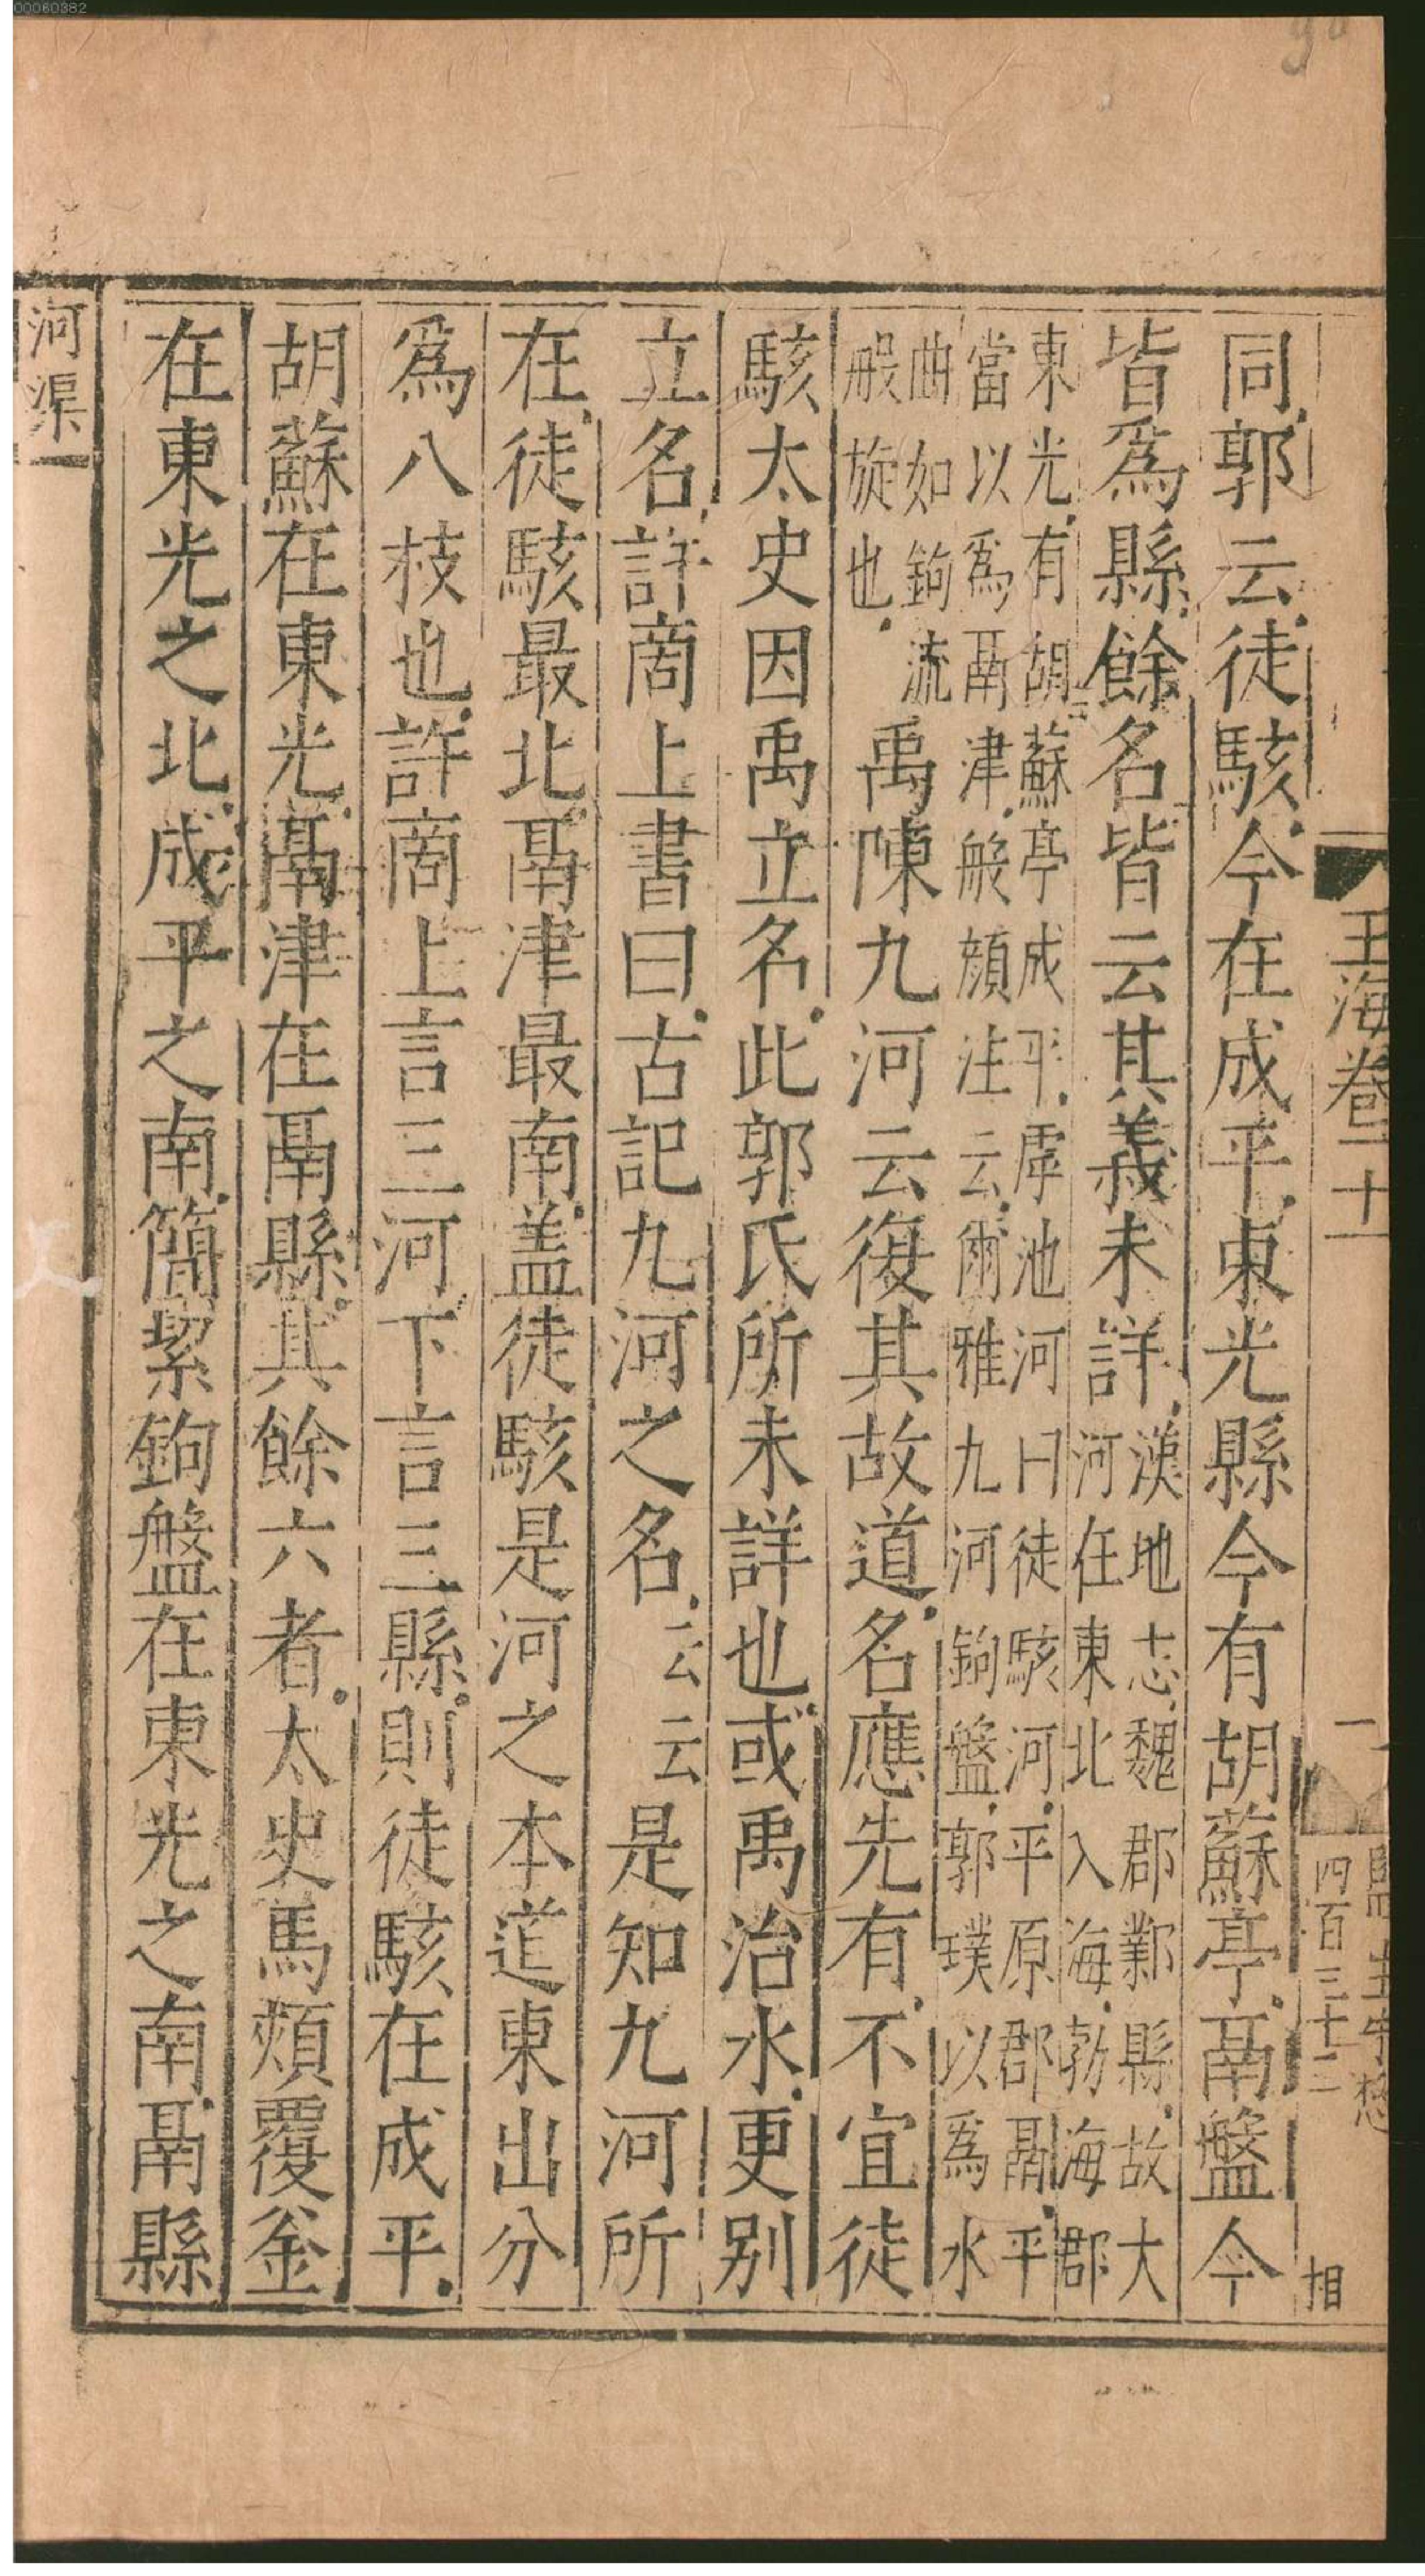 00060382
玉海卷二十一
一
四百三十二
相
同郭云徒駭今在成平東光縣今有胡蘇亭鬲盤今
皆爲縣餘名皆云其義未詳
漢地志魏郡鄴縣故大
河在東北入海勃海郡
東光有胡蘇亭成平虖池河曰徒駭河平原郡鬲平
當以爲鬲津般顔注云爾雅九河鉤盤郭璞以爲水
曲如鉤流
般旋也
禹陳九河云復其故道名應先有不宜徒
駭太史因禹立名此郭氏所未詳也或禹治水更别
立名許商上書曰古記九河之名云云是知九河所
在徒駭最北鬲津最南盖徒駭是河之本道東出分
爲八枝也許商上言三河下言三縣則徒駭在成平
胡蘇在東光鬲津在鬲縣其餘六者太史馬頰覆釡
在東光之北成平之南簡絜鉤盤在東光之南鬲縣
河渠一